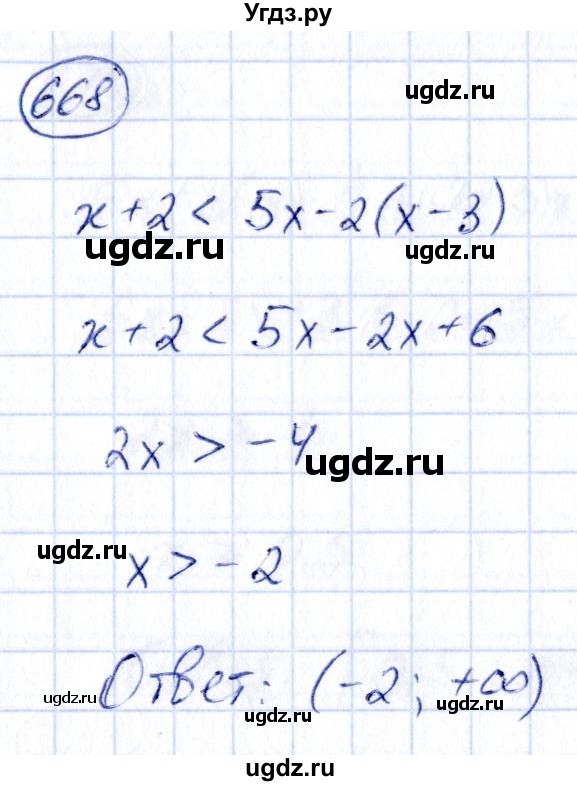 Угдз.ру
668
ugdz.ru
x+2 < 5x-2(x-3)
ugdz.ru ugdz.ru
x+2 < 5x-2x+6
2x > -4
ugdz.ru
ugdz.ru
x > -2
Ответ: (-2; +∞)
ugdz.ru ugdz.ru ugdz.ru
ugdz.ru